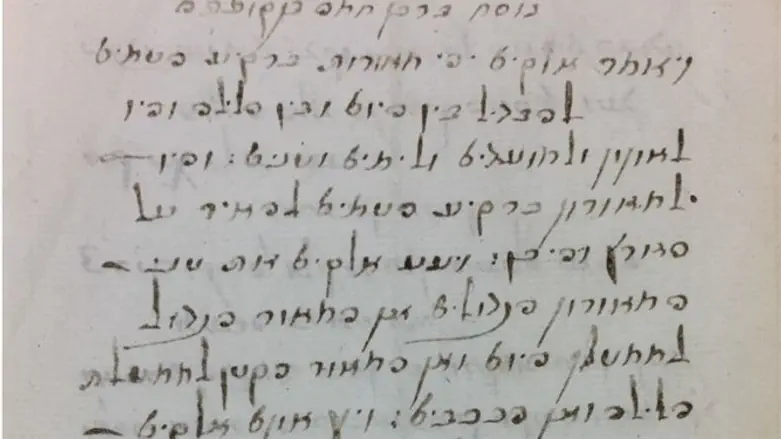 נוסח ברכת חמה
ויאמר אלקים יהי מאורות ברקיע השמים
להבדיל בין היום ובין הלילה והיו
לאותות ולמועדים ולימים ושנים: והיו —
למאורות ברקיע השמים להאיר על
הארץ ויהי כן: ויעש אלקים את שני —
המאורות הגדולים את המאור הגדול
לממשלת היום ואת המאור הקטן לממשלת
הלילה ואת הככבים: ויתן אותם אלקים —